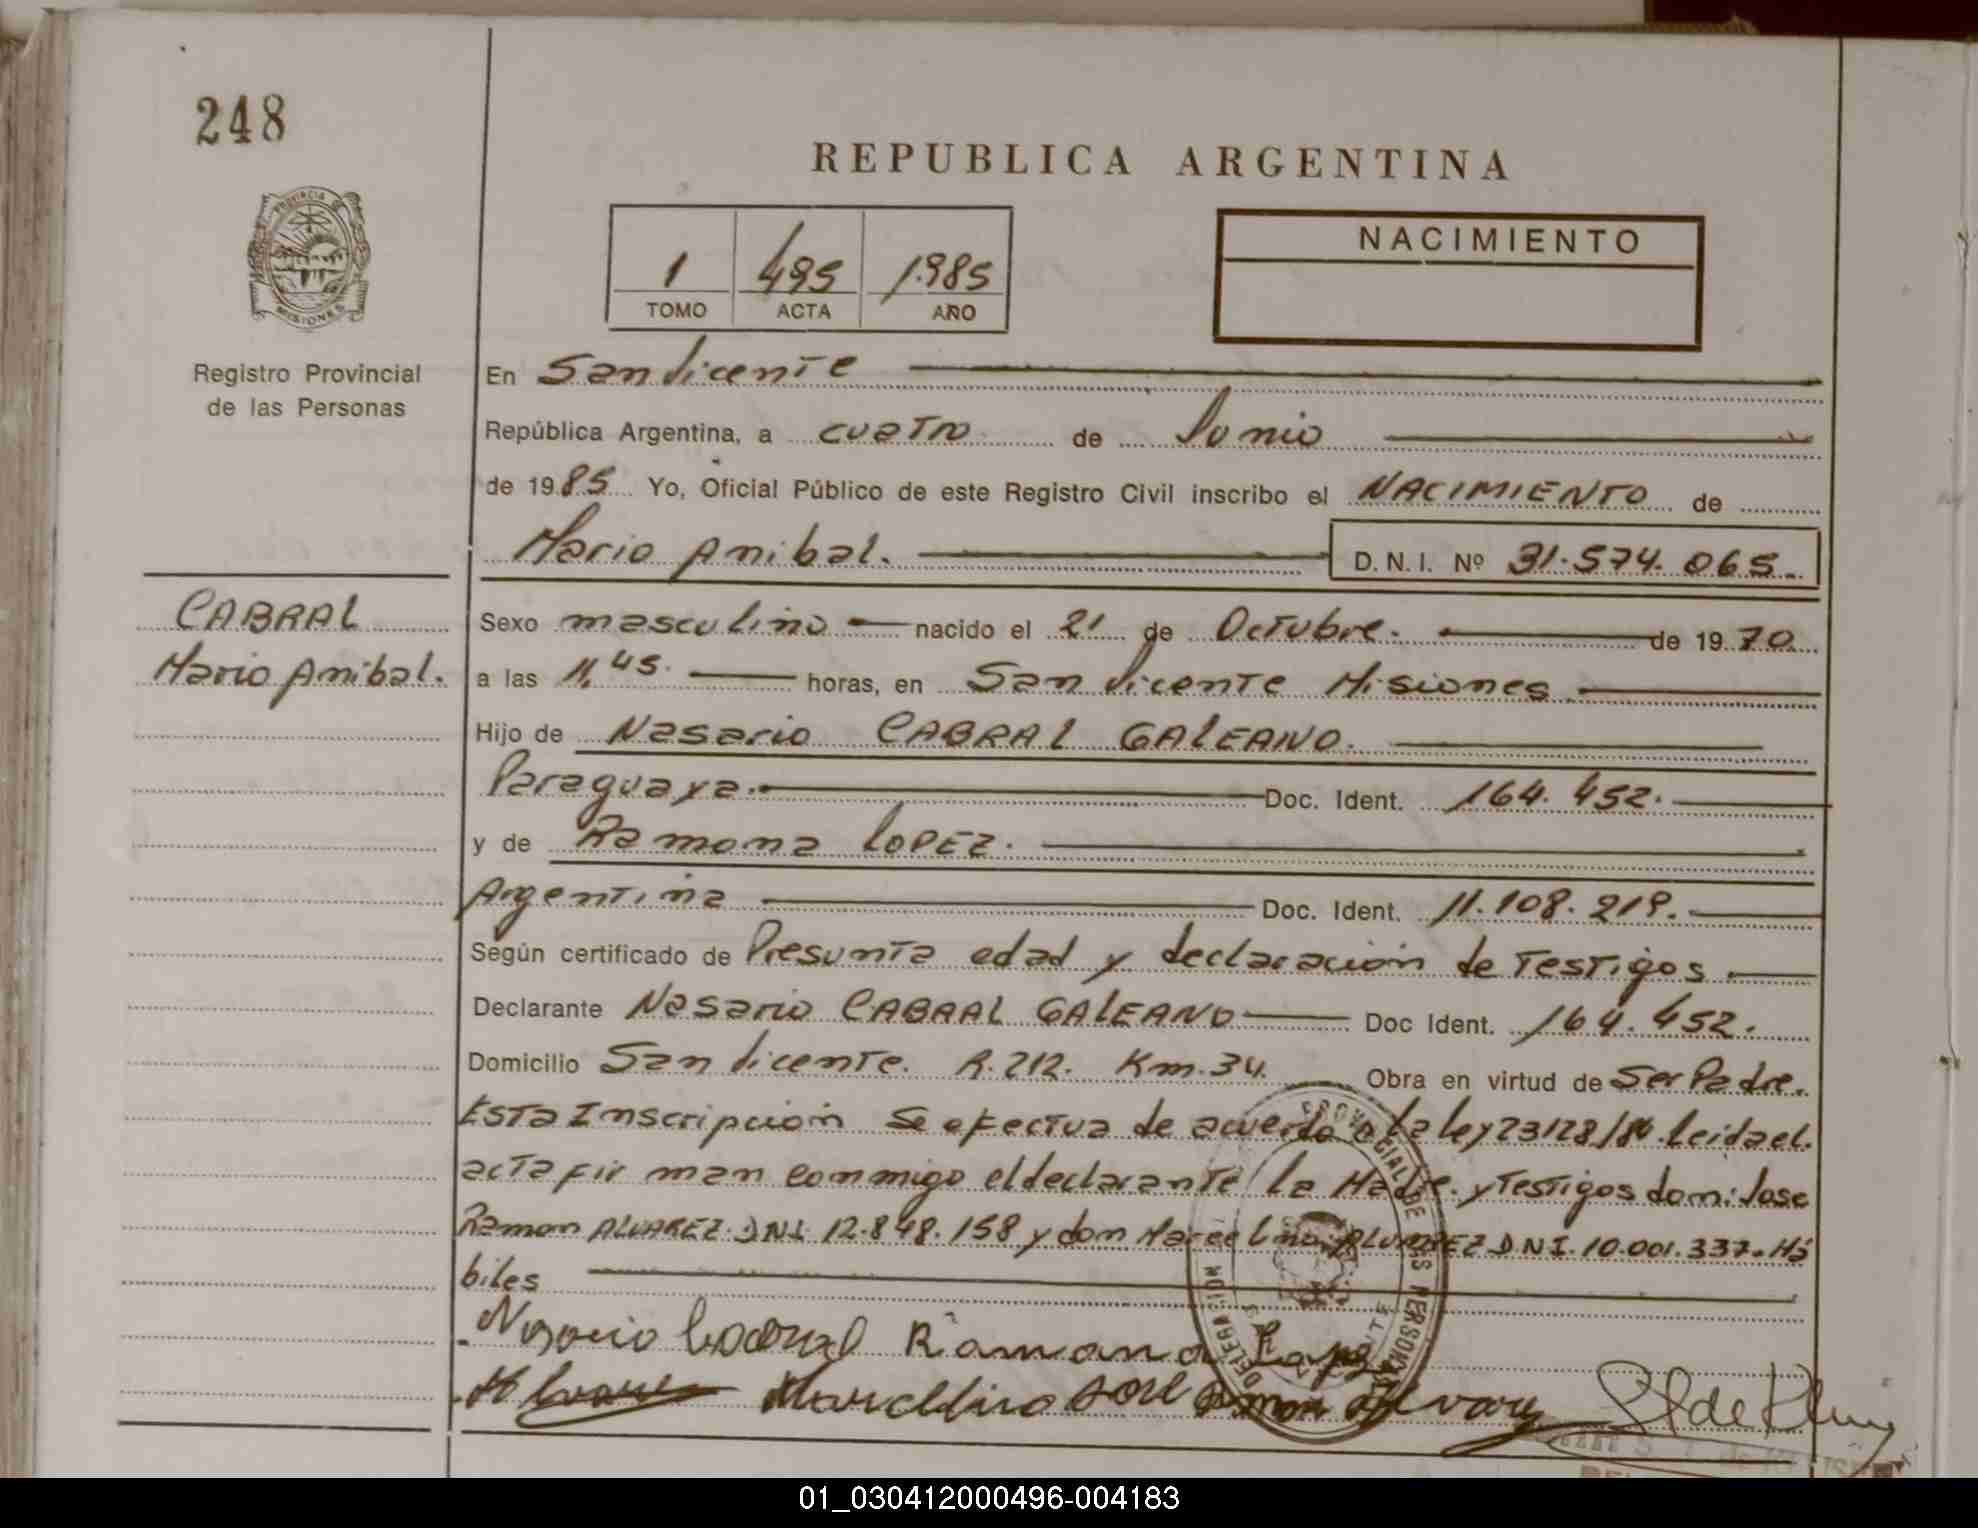 248
REPUBLICA ARGENTINA
PROVINCIA DE
MISIONES
1 495 1.985
TOMO ACTA AÑO
NACIMIENTO
Registro Provincial
de las Personas
En San Vicente
República Argentina, a cuatro de Junio
de 1985 Yo, Oficial Público de este Registro Civil inscribo el NACIMIENTO de
Mario Anibal. D.N.I. Nº 31.574.065.
CABRAL
Mario Anibal.
Sexo masculino nacido el 21 de Octubre. de 1970
a las 11,45. horas, en San Vicente Misiones
Hijo de Nasario CABRAL GALEANO.
Paraguaya. Doc. Ident. 164.452.
y de Ramona LOPEZ.
Argentina Doc. Ident. 11.108.219.
Según certificado de Presunta edad y declaración de Testigos.
Declarante Nasario CABRAL GALEANO Doc Ident. 164.452.
Domicilio San Vicente. R.212. Km.34. Obra en virtud de Ser Padre.
Esta Inscripción se efectua de acuerdo a la Ley 23128/84. Leida el
acta firman conmigo el declarante la Madre. y Testigos dom: Jose
Ramon ALVAREZ. DNI 12.848.158 y don Marcelino ALVAREZ DNI. 10.001.337. Há
biles
Nasario Cabral Ramona Lopez
Alvarez Marcelino José Ramon Alvarez
PROVINCIAL DE LAS PERSONAS
DELEGACION
01_030412000496-004183